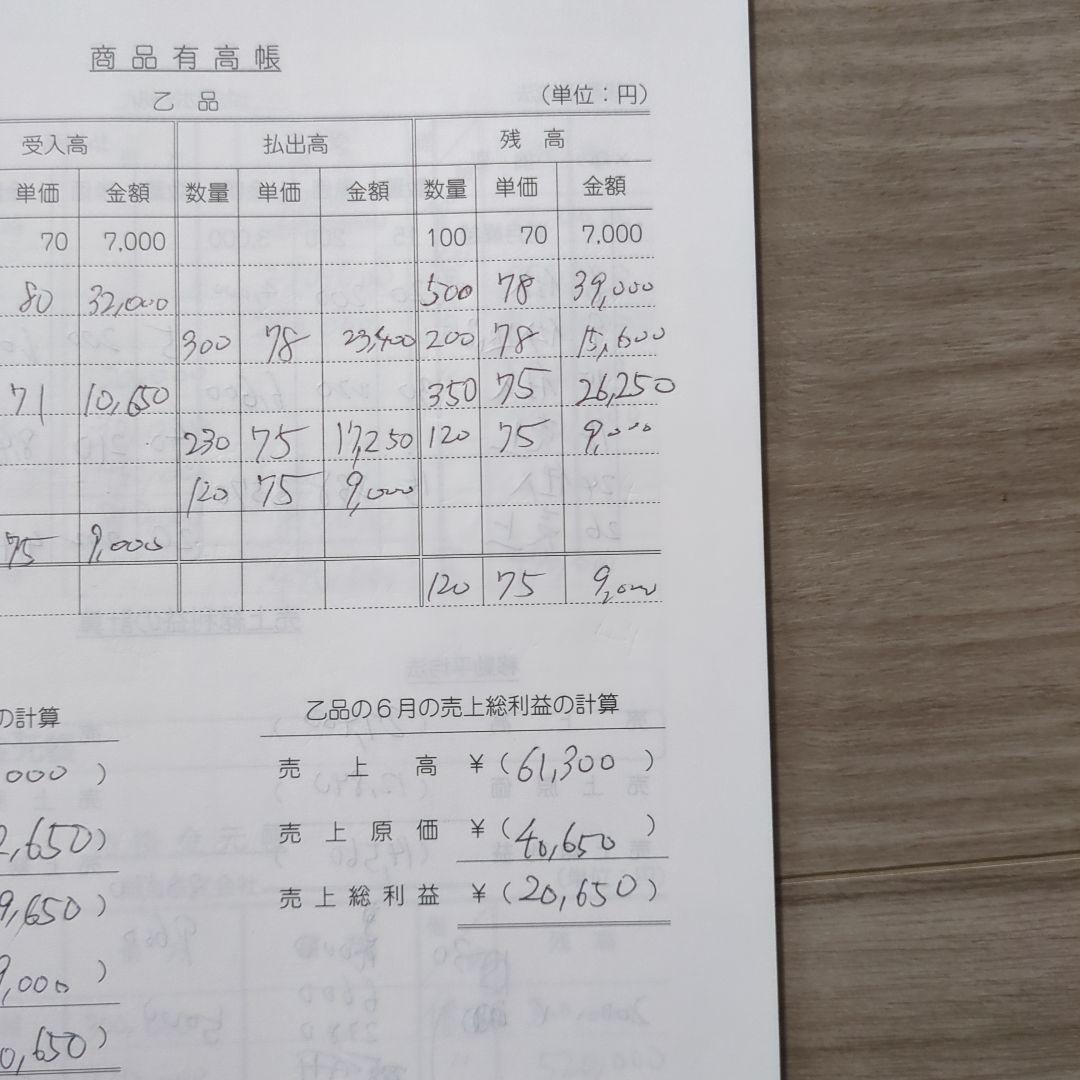 商品有高帳
乙品 (単位：円)
受入高 払出高 残高
単価 金額 数量 単価 金額 数量 単価 金額
70 7,000 100 70 7,000
80 32,000 500 78 39,000
300 78 23,400 200 78 15,600
71 10,650 350 75 26,250
230 75 17,250 120 75 9,000
120 75 9,000
75 9,000
120 75 9,000
の計算
000 )
2,650)
9,650)
9,000 )
0,650)
乙品の６月の売上総利益の計算
売上高 ¥ (61,300 )
売上原価 ¥ (40,650 )
売上総利益 ¥ (20,650 )